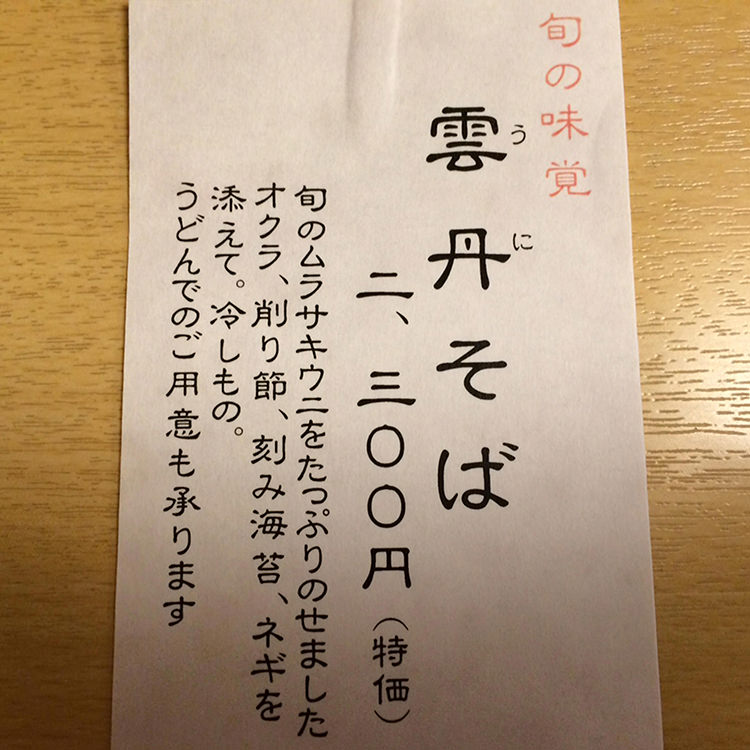 旬の味覚
雲丹そば
うに
二、三〇〇円（特価）
旬のムラサキウニをたっぷりのせました
オクラ、削り節、刻み海苔、ネギを
添えて。冷しもの。
うどんでのご用意も承ります